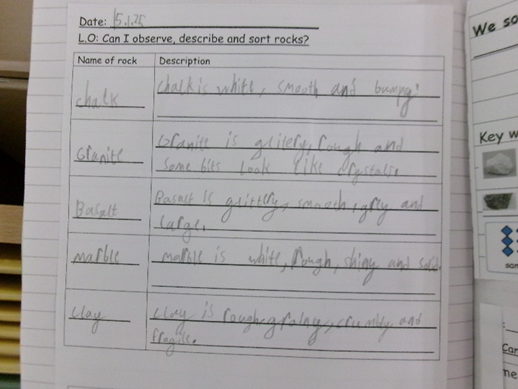 Date: 15.1.25
L.O: Can I observe, describe and sort rocks?
Name of rock Description
chalk chalk is white, smooth and bumpy.
Granite Granite is glitery, rough and
some bits look like crystals.
Basalt Basalt is glittery, smooth, grey and
large.
marble marble is white, rough, shiny and
clay clay is rough, grainy, crumbly and
fragile.
We so
Key w
san
Car
me